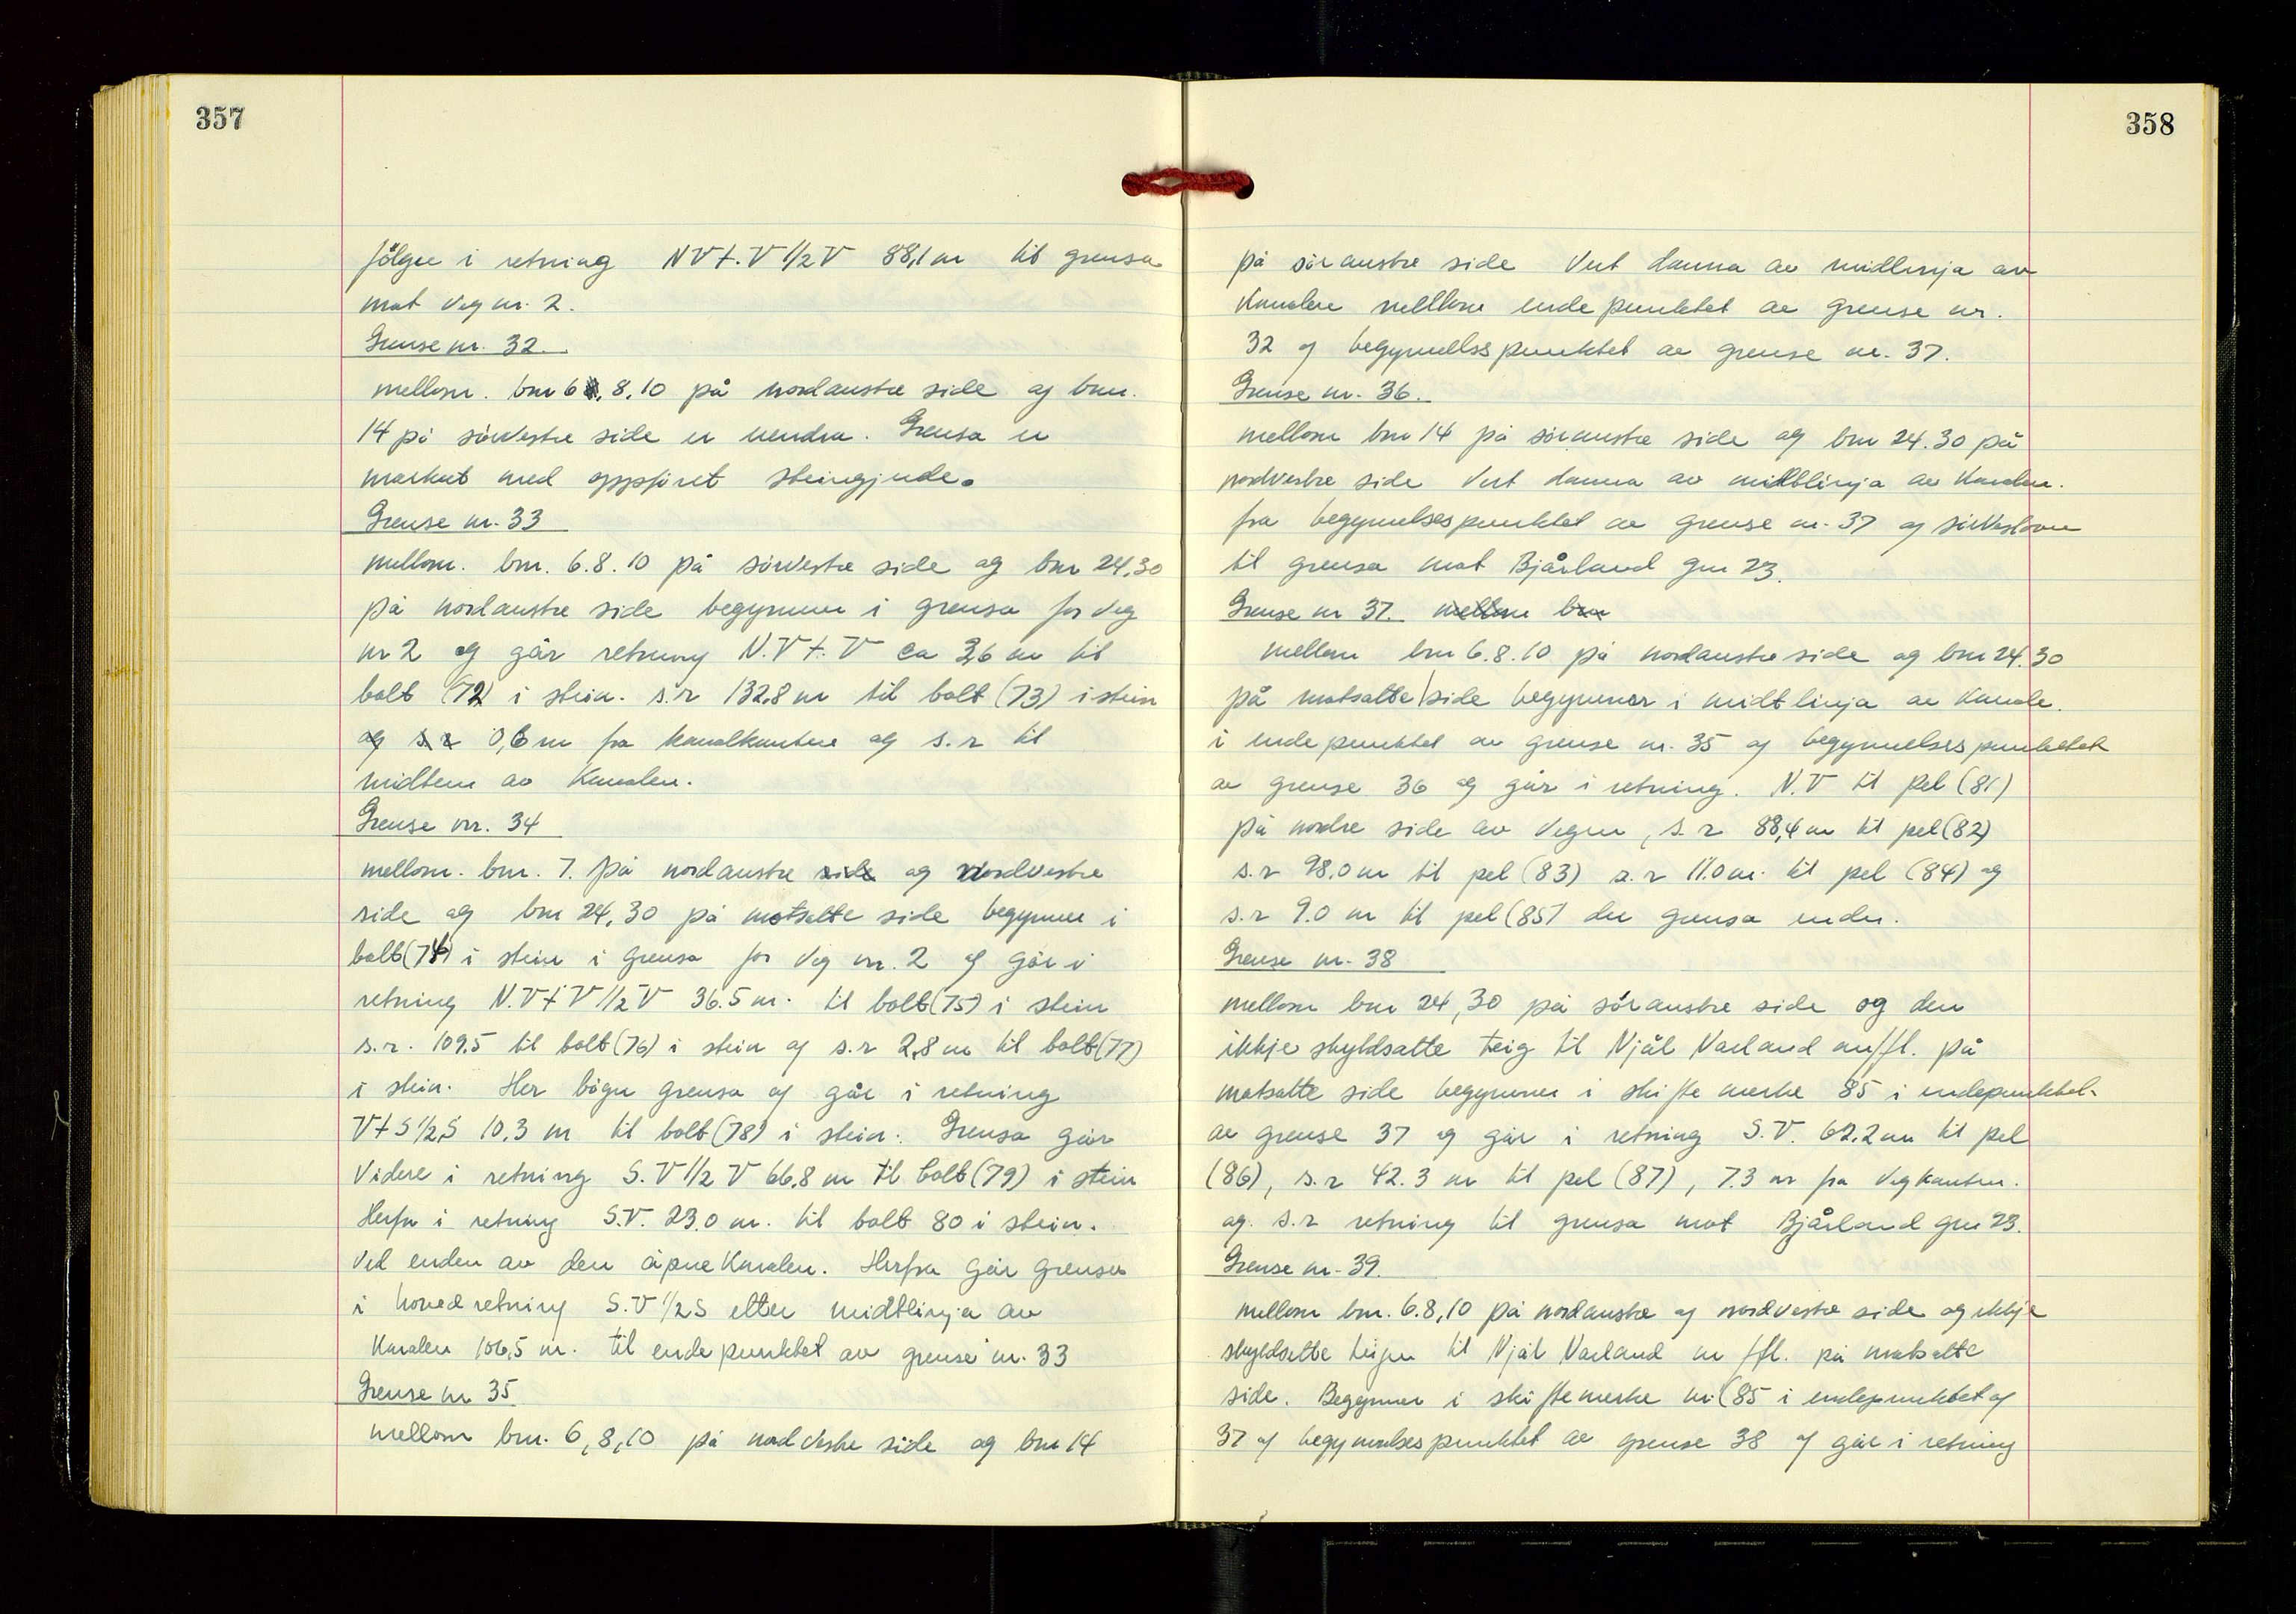 357
følger i retning NVt.V 1/2 V 88,1 m til grensa
mot veg nr. 2.
Grense nr. 32.
mellom. bnr 6, 8, 10 på nordaustre side og bnr.
14 på sørvestre side er uendra. Grensa er
merket med oppført steingjerde.
Grense nr. 33
mellom. bnr. 6. 8. 10 på sørvestre side og bnr 24.30
på nordaustre side begynner i grensa for veg
nr 2 og går retning N.Vt.V ca 3,6 m til
bolt (72) i stein. s.r 132,8 m til bolt (73) i stein
og s.r 0,6 m fra kanalkanten og s.r til
midten av Kanalen.
Grense nr. 34
mellom. bnr. 7. på nordaustre side og nordvestre
side og bnr 24, 30 på motsatte side begynner i
bolt (74) i stein i grensa for veg nr. 2 og går i
retning N.Vt V 1/2 V 36.5 m. til bolt (75) i stein
s.r. 109.5 til bolt (76) i stein og s.r 2,8 m til bolt (77)
i stein. Her bøger grensa og går i retning
Vt S 1/2 S 10,3 m til bolt (78) i stein. Grensa går
videre i retning S.V 1/2 V 66,8 m til bolt (79) i stein
Herfra i retning S.V. 23.0 m. til bolt 80 i stein.
ved enden av den åpne Kanalen. Herfra går grensa
i hovedretning S.V 1/2 S etter midtlinja av
Kanalen 106,5 m. til endepunktet av grense nr. 33
Grense nr 35
mellom bnr. 6, 8, 10 på nordvestre side og bnr 14
358
på søraustre side vert danna av midlinja av
Kanalen mellom endepunktet av grense nr.
32 og begynnelsspunktet av grense nr. 37.
Grense nr. 36.
mellom bnr 14 på søraustre side og bnr 24.30 på
nordvestre side vert danna av midtlinja av Kanalen.
fra begynnelsespunktet av grense nr. 37 og sørvestover
til grensa mot Bjårland gnr 23.
Grense nr 37. mellom bnr
mellom bnr 6. 8. 10 på nordaustre side og bnr 24. 30
på motsatte side begynner i midtlinja av Kanale.
i endepunktet av grense nr. 35 og begynnelsespunktet
av grense 36 og går i retning. N.V til pel (81)
på nordre side av vegen, s.r 88,4 m til pel (82)
s.r 98.0 m til pel (83) s.r 11.0 m. til pel (84) og
s.r 9.0 m til pel (85) der grensa ender.
Grense nr. 38
mellom bnr 24, 30 på søraustre side og den
ikkje skyldsatte teig til Njål Varland m/fl. på
motsatte side begynner i skiftemerke 85 i endepunktet
av grense 37 og går i retning S.V. 62.2 m til pel
(86), s.r 42.3 m til pel (87), 7.3 m fra vegkanten.
og. s.r retning til grensa mot Bjårland gnr 23.
Grense nr. 39.
mellom bnr. 6. 8, 10 på nordaustre og nordvestre side og ikkje
skyldsatte teigen til Njål Varland m/fl. på motsatte
side. Begynner i skiftemerke nr (85 i endepunktet av
37 og begynnelsespunktet av grense 38 og går i retning